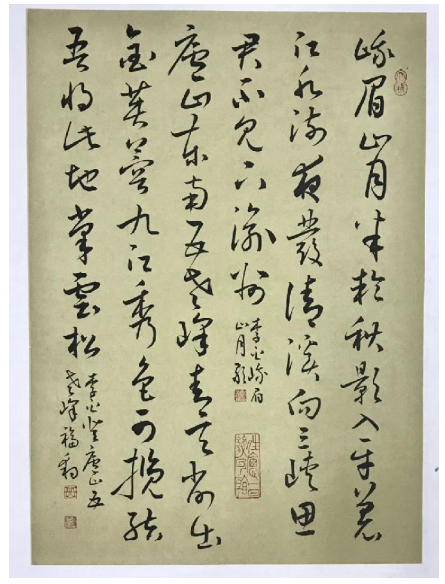 峨眉山月半輪秋影入平羌
江水流夜發清溪向三峽思
君不見下渝州
李白峨眉
山月歌
廬山東南五老峰青天削出
金芙蓉九江秀色可攬結
吾將此地巢雲松
李白登廬山五
老峰